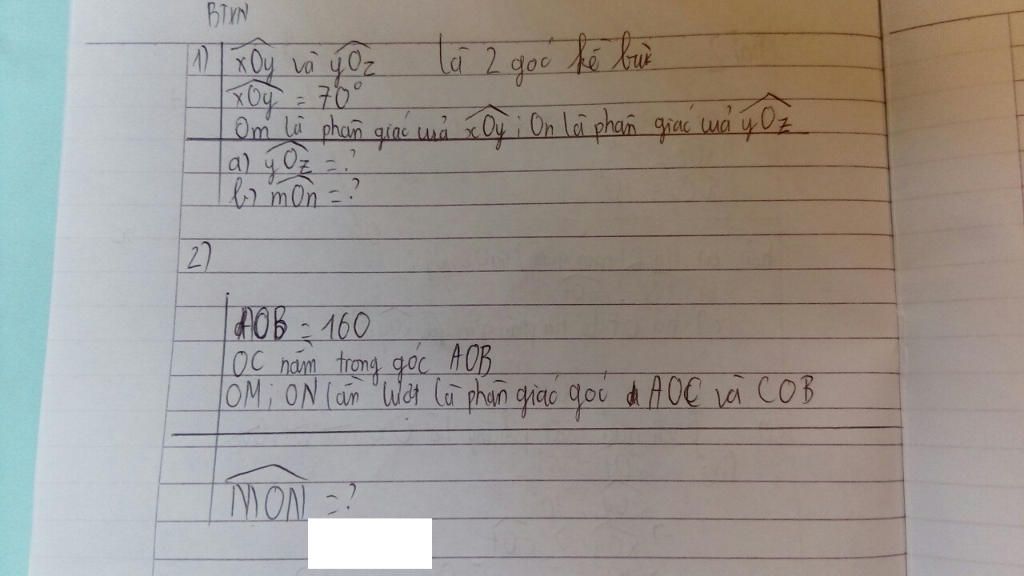 BTVN
1) xOy và yOz là 2 góc kề bù
xOy = 70°
Om là phân giác của xOy; On là phân giác của yOz
a) yOz = ?
b) mOn = ?
2)
AOB = 160
OC nằm trong góc AOB
OM; ON lần lượt là phân giác góc AOC và COB
MON = ?